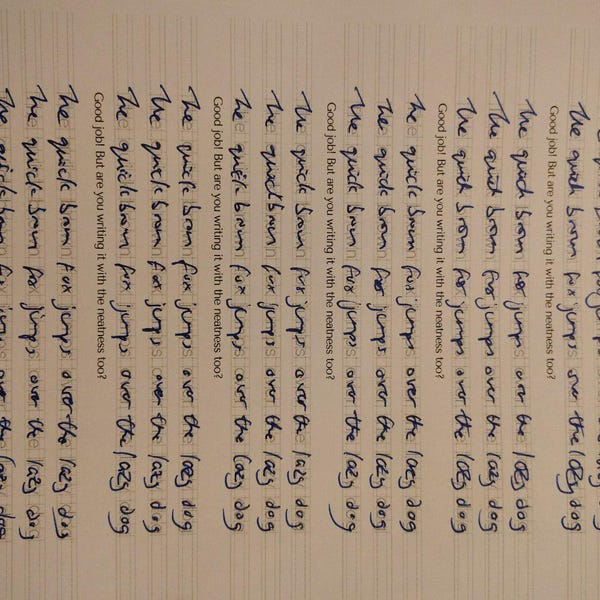 dog
The quick brown fox jumps over the lazy dog
Good job! But are you writing it with the neatness too?
The quick brown fox jumps over the lazy dog
The quick brown fox jumps over the lazy dog
The quick brown fox jumps over the lazy dog
Good job! But are you writing it with the neatness too?
The quick brown fox jumps over the lazy dog
The quick brown fox jumps over the lazy dog
The quick brown fox jumps over the lazy dog
Good job! But are you writing it with the neatness too?
The quick brown fox jumps over the lazy dog
The quick brown fox jumps over the lazy dog
The quick brown fox jumps over the lazy dog
Good job! But are you writing it with the neatness too?
The quick brown fox jumps over the lazy dog
The quick brown fox jumps over the lazy dog
The quick brown fox jumps over the lazy dog
Good job! But are you writing it with the neatness too?
The quick brown fox jumps over the lazy dog
The quick brown fox jumps over the lazy dog
The quick brown fox jumps over the lazy dog